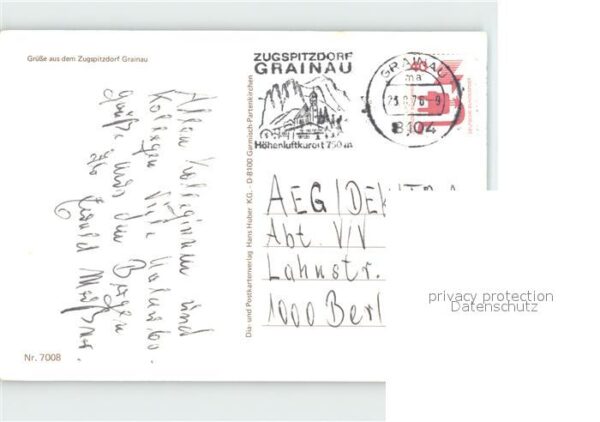 Grüße aus dem Zugspitzdorf Grainau
ZUGSPITZDORF
GRAINAU
Höhenluftkurort 750 m
GRAINAU
ma
8104
40
Allen Kolleginnen und
Kollegen viele
Grüße aus den Bergen
Dia- und Postkartenverlag Hans Huber KG. - D-8100 Garmisch-Partenkirchen
AEG/
Abt. V/V
Lahnstr.
1000 Berl
Nr. 7008
privacy protection
Datenschutz